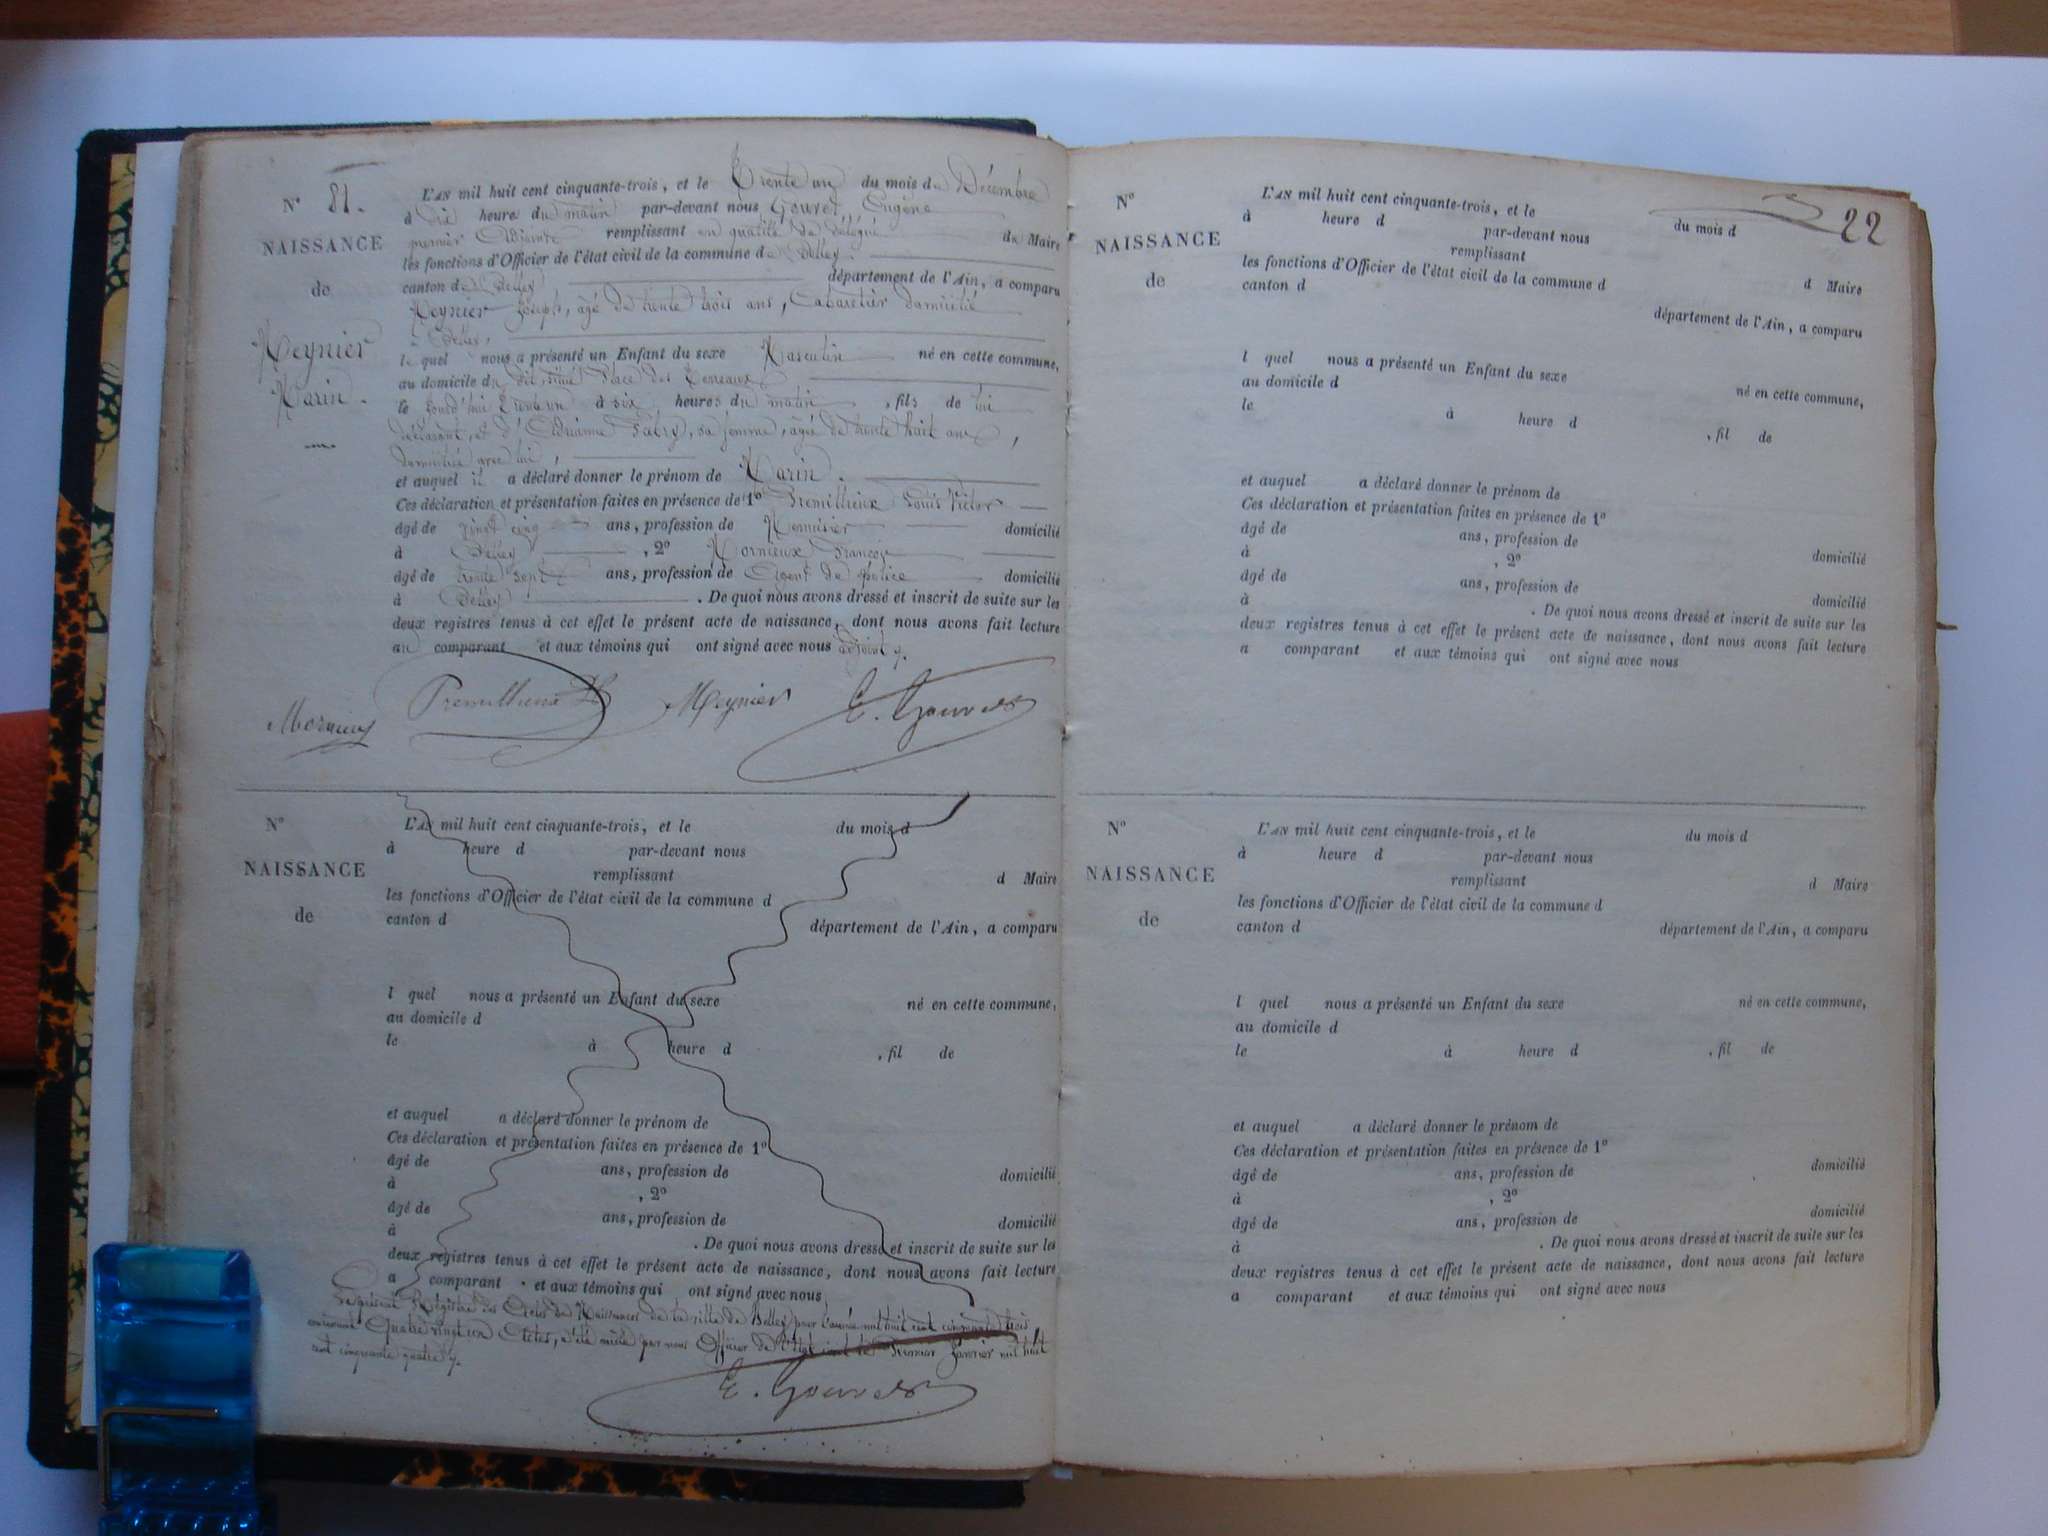 N° 81.
NAISSANCE
de
Meynier
Marin.
L'AN mil huit cent cinquante-trois, et le Trente un du mois de Décembre
à dix heure du matin par-devant nous Gouvet, Eugène
premier Adjoint remplissant en qualité de délégué du Maire
les fonctions d'Officier de l'état civil de la commune de Belley.
canton de Belley, département de l'Ain, a comparu
Meynier Joseph, âgé de trente trois ans, Cabaretier domicilié
à Belley,
le quel nous a présenté un Enfant du sexe Masculin né en cette commune,
au domicile du Place des Terreaux
le jourd'hui trente un à six heures du matin, fils de lui
déclarant, et d' sa femme, agée de trente huit ans,
domiciliée avec lui,
et auquel il a déclaré donner le prénom de Marin.
Ces déclaration et présentation faites en présence de 1° Premillieux Louis Victor
âgé de vingt cinq ans, profession de Menuisier domicilié
à Belley, 2° Mornieux François
âgé de trente sept ans, profession de Agent de police domicilié
à Belley. De quoi nous avons dressé et inscrit de suite sur les
deux registres tenus à cet effet le présent acte de naissance, dont nous avons fait lecture
au comparant et aux témoins qui ont signé avec nous adjoint
Mornieux Premillieux Meynier E. Gouvet
N°
NAISSANCE
de
L'AN mil huit cent cinquante-trois, et le du mois d
à heure d par-devant nous
remplissant d Maire
les fonctions d'Officier de l'état civil de la commune d
canton d département de l'Ain, a comparu
l quel nous a présenté un Enfant du sexe né en cette commune,
au domicile d
le à heure d , fil de
et auquel a déclaré donner le prénom de
Ces déclaration et présentation faites en présence de 1°
âgé de ans, profession de domicilié
à , 2°
âgé de ans, profession de domicilié
à . De quoi nous avons dressé et inscrit de suite sur les
deux registres tenus à cet effet le présent acte de naissance, dont nous avons fait lecture
a comparant et aux témoins qui ont signé avec nous
Le présent Régistre des Actes de Naissances de la ville de Belley pour l'année mil huit cent cinquante trois
contenant Quatre vingt un Actes, a été par nous Officier de l'état civil le Premier Janvier mil huit
cent cinquante quatre
E. Gouvet
22
N°
NAISSANCE
de
L'AN mil huit cent cinquante-trois, et le du mois d
à heure d par-devant nous
remplissant d Maire
les fonctions d'Officier de l'état civil de la commune d
canton d département de l'Ain, a comparu
l quel nous a présenté un Enfant du sexe né en cette commune,
au domicile d
le à heure d , fil de
et auquel a déclaré donner le prénom de
Ces déclaration et présentation faites en présence de 1°
âgé de ans, profession de domicilié
à , 2°
âgé de ans, profession de domicilié
à . De quoi nous avons dressé et inscrit de suite sur les
deux registres tenus à cet effet le présent acte de naissance, dont nous avons fait lecture
a comparant et aux témoins qui ont signé avec nous
N°
NAISSANCE
de
L'AN mil huit cent cinquante-trois, et le du mois d
à heure d par-devant nous
remplissant d Maire
les fonctions d'Officier de l'état civil de la commune d
canton d département de l'Ain, a comparu
l quel nous a présenté un Enfant du sexe né en cette commune,
au domicile d
le à heure d , fil de
et auquel a déclaré donner le prénom de
Ces déclaration et présentation faites en présence de 1°
âgé de ans, profession de domicilié
à , 2°
âgé de ans, profession de domicilié
à . De quoi nous avons dressé et inscrit de suite sur les
deux registres tenus à cet effet le présent acte de naissance, dont nous avons fait lecture
a comparant et aux témoins qui ont signé avec nous